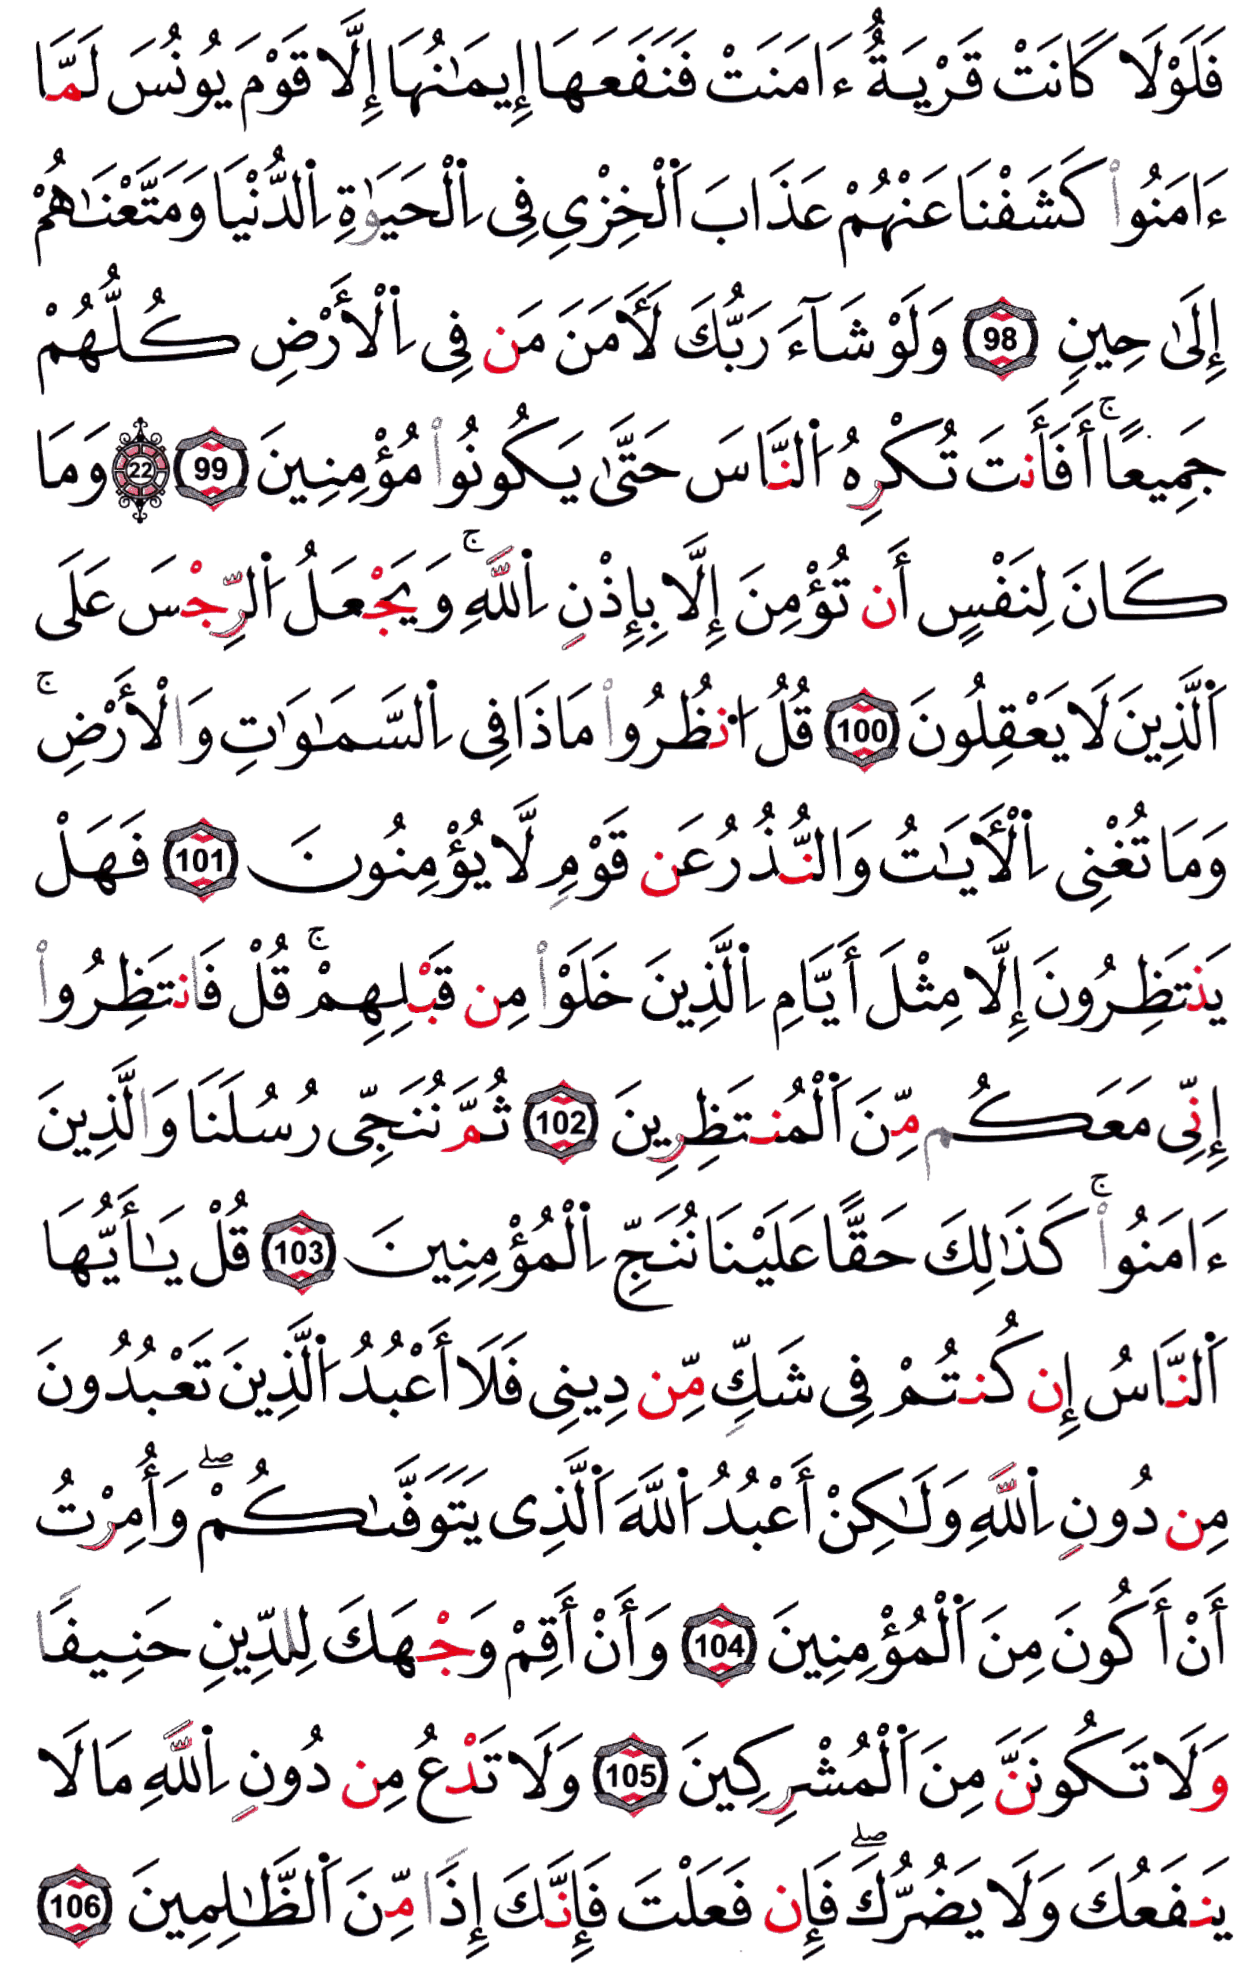 فَلَوْلَا كَانَتْ قَرْيَةٌ ءَامَنَتْ فَنَفَعَهَا إِيمَٰنُهَا إِلَّا قَوْمَ يُونُسَ لَمَّا
ءَامَنُوا۟ كَشَفْنَا عَنْهُمْ عَذَابَ اَ۬لْخِزْيِ فِى اِ۬لْحَيَوٰةِ اِ۬لدُّنْيَا وَمَتَّعْنَٰهُمْ
إِلَىٰ حِينٍ 98 وَلَوْ شَآءَ رَبُّكَ لَأٓمَنَ مَن فِى اِ۬لْأَرْضِ كُلُّهُمْ
جَمِيعًا ۚ أَفَأَنتَ تُكْرِهُ اُ۬لنَّاسَ حَتَّىٰ يَكُونُوا۟ مُؤْمِنِينَ 99 22 وَمَا
كَانَ لِنَفْسٍ أَن تُؤْمِنَ إِلَّا بِإِذْنِ اِ۬للَّهِ ۚ وَيَجْعَلُ اُ۬لرِّجْسَ عَلَى
اَ۬لَّذِينَ لَا يَعْقِلُونَ 100 قُلُ اُ۟نظُرُوا۟ مَاذَا فِى اِ۬لسَّمَٰوَٰتِ وَالْأَرْضِ ۚ
وَمَا تُغْنِى اِ۬لْأٓيَٰتُ وَالنُّذُرُ عَن قَوْمٍ لَّا يُؤْمِنُونَ 101 فَهَلْ
يَنتَظِرُونَ إِلَّا مِثْلَ أَيَّامِ اِ۬لَّذِينَ خَلَوْا۟ مِن قَبْلِهِمْ ۚ قُلْ فَانتَظِرُوا۟
إِنِّى مَعَكُم مِّنَ اَ۬لْمُنتَظِرِينَ 102 ثُمَّ نُنَجِّى رُسُلَنَا وَالَّذِينَ
ءَامَنُوا۟ ۚ كَذَٰلِكَ حَقًّا عَلَيْنَا نُنَجِّ اِ۬لْمُؤْمِنِينَ 103 قُلْ يَٰأَيُّهَا
اَ۬لنَّاسُ إِن كُنتُمْ فِى شَكٍّ مِّن دِينِى فَلَا أَعْبُدُ اُ۬لَّذِينَ تَعْبُدُونَ
مِن دُونِ اِ۬للَّهِ وَلَٰكِنْ أَعْبُدُ اُ۬للَّهَ اَ۬لَّذِى يَتَوَفَّىٰكُمْ ۖ وَأُمِرْتُ
أَنْ أَكُونَ مِنَ اَ۬لْمُؤْمِنِينَ 104 وَأَنْ أَقِمْ وَجْهَكَ لِلدِّينِ حَنِيفًا
وَلَا تَكُونَنَّ مِنَ اَ۬لْمُشْرِكِينَ 105 وَلَا تَدْعُ مِن دُونِ اِ۬للَّهِ مَا لَا
يَنفَعُكَ وَلَا يَضُرُّكَ ۖ فَإِن فَعَلْتَ فَإِنَّكَ إِذًا مِّنَ اَ۬لظَّٰلِمِينَ 106